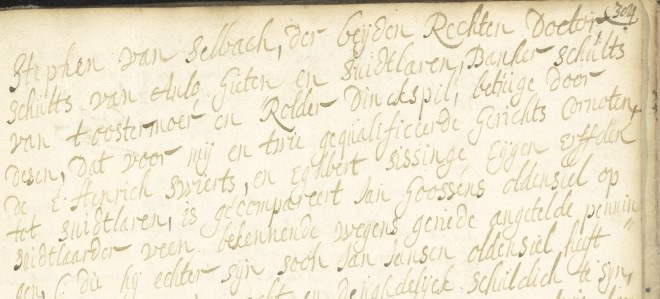 304
Stephen van Selbach, der beijden Rechten Doctor,
Schults van Anlo, Gieten en Suidtlaren, Bancker Schults
van t oostermoer en Rolder Dinckspil, betuige door
desen, Dat voor mij en twe gequalificeerde Gerichts Cornoten,
de E. Henrich Swierts, en Eghbert Sissinge Eijgen Erffden
tot Suidtlaren, is gecompareert Jan Goossens oldensiel op
Suidtlaarder veen bekennende wegens gerede angetelde pennin
gen, die hij echter sijn soon Jan Jansen oldensiel heeft
oprecht en deughdelijck schuldich te sijn,